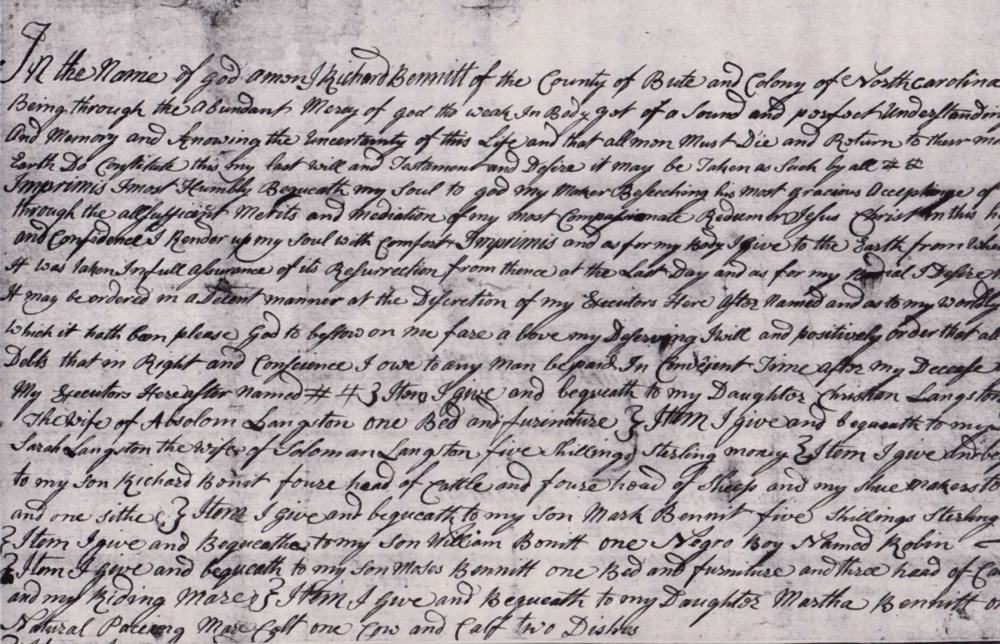 In the Name of god amen I Richard Bennitt of the County of Bute and Colony of North carolina
Being through the abundant Mercy of god tho weak In Body yet of a Sound and perfect Understandin
And Memory and Knowing the Uncertainty of this Life and that all men Must Die and Return to their mo
Earth Do Constitute this my last Will and Testament and Desire it may be Taken as Such by all # #
Imprimis I most Humbly Bequeath my Soul to god my Maker Beseeching his most gracious Acceptance of
through the allsufficient Merits and mediation of my most Compassionate Redeemer Jesus Christ In this h
and Confidence I Render up my Soul with Comfort Imprimis and as for my Body I give to the Earth from Whi
It was taken In full assurance of its Resurrection from thence at the Last Day and as for my burial I Desire
It may be ordered in a Decent manner at the Discretion of my Executors Here after Named and as to my Worldly
Which it hath been please God to bestow on me fare a bove my Deserving I will and positively order that al
Debts that in Right and Conscience I owe to any Man be paid In Convenient Time after my Decease
My Executors Hereafter Named # # } Item I give and bequeath to my Daughter Christian Langston
The Wife of Absolom Langston one Bed and furiniture } Item I give and bequeath to my
Sarah Langston the Wife of Soloman Langston five Shillings Sterling money } Item I give and be
to my Son Richard Bonit foure head of Cattle and foure head of Sheep and my shue makers to
and one sithe } Item I give and bequeath to my Son Mark Bennit five Shillings Sterling
} Item I give and Bequeathe to my Son William Bonitt one Negro Boy Named Robin
} Item I give and bequeath to my Son Moses Bennitt one Bed and furniture and three head of Ca
and my Riding Mare } Item I Give and Bequeath to my Daughter Martha Bennitt o
Natural Paceing Mare Colt one Cow and Calf two Dishes